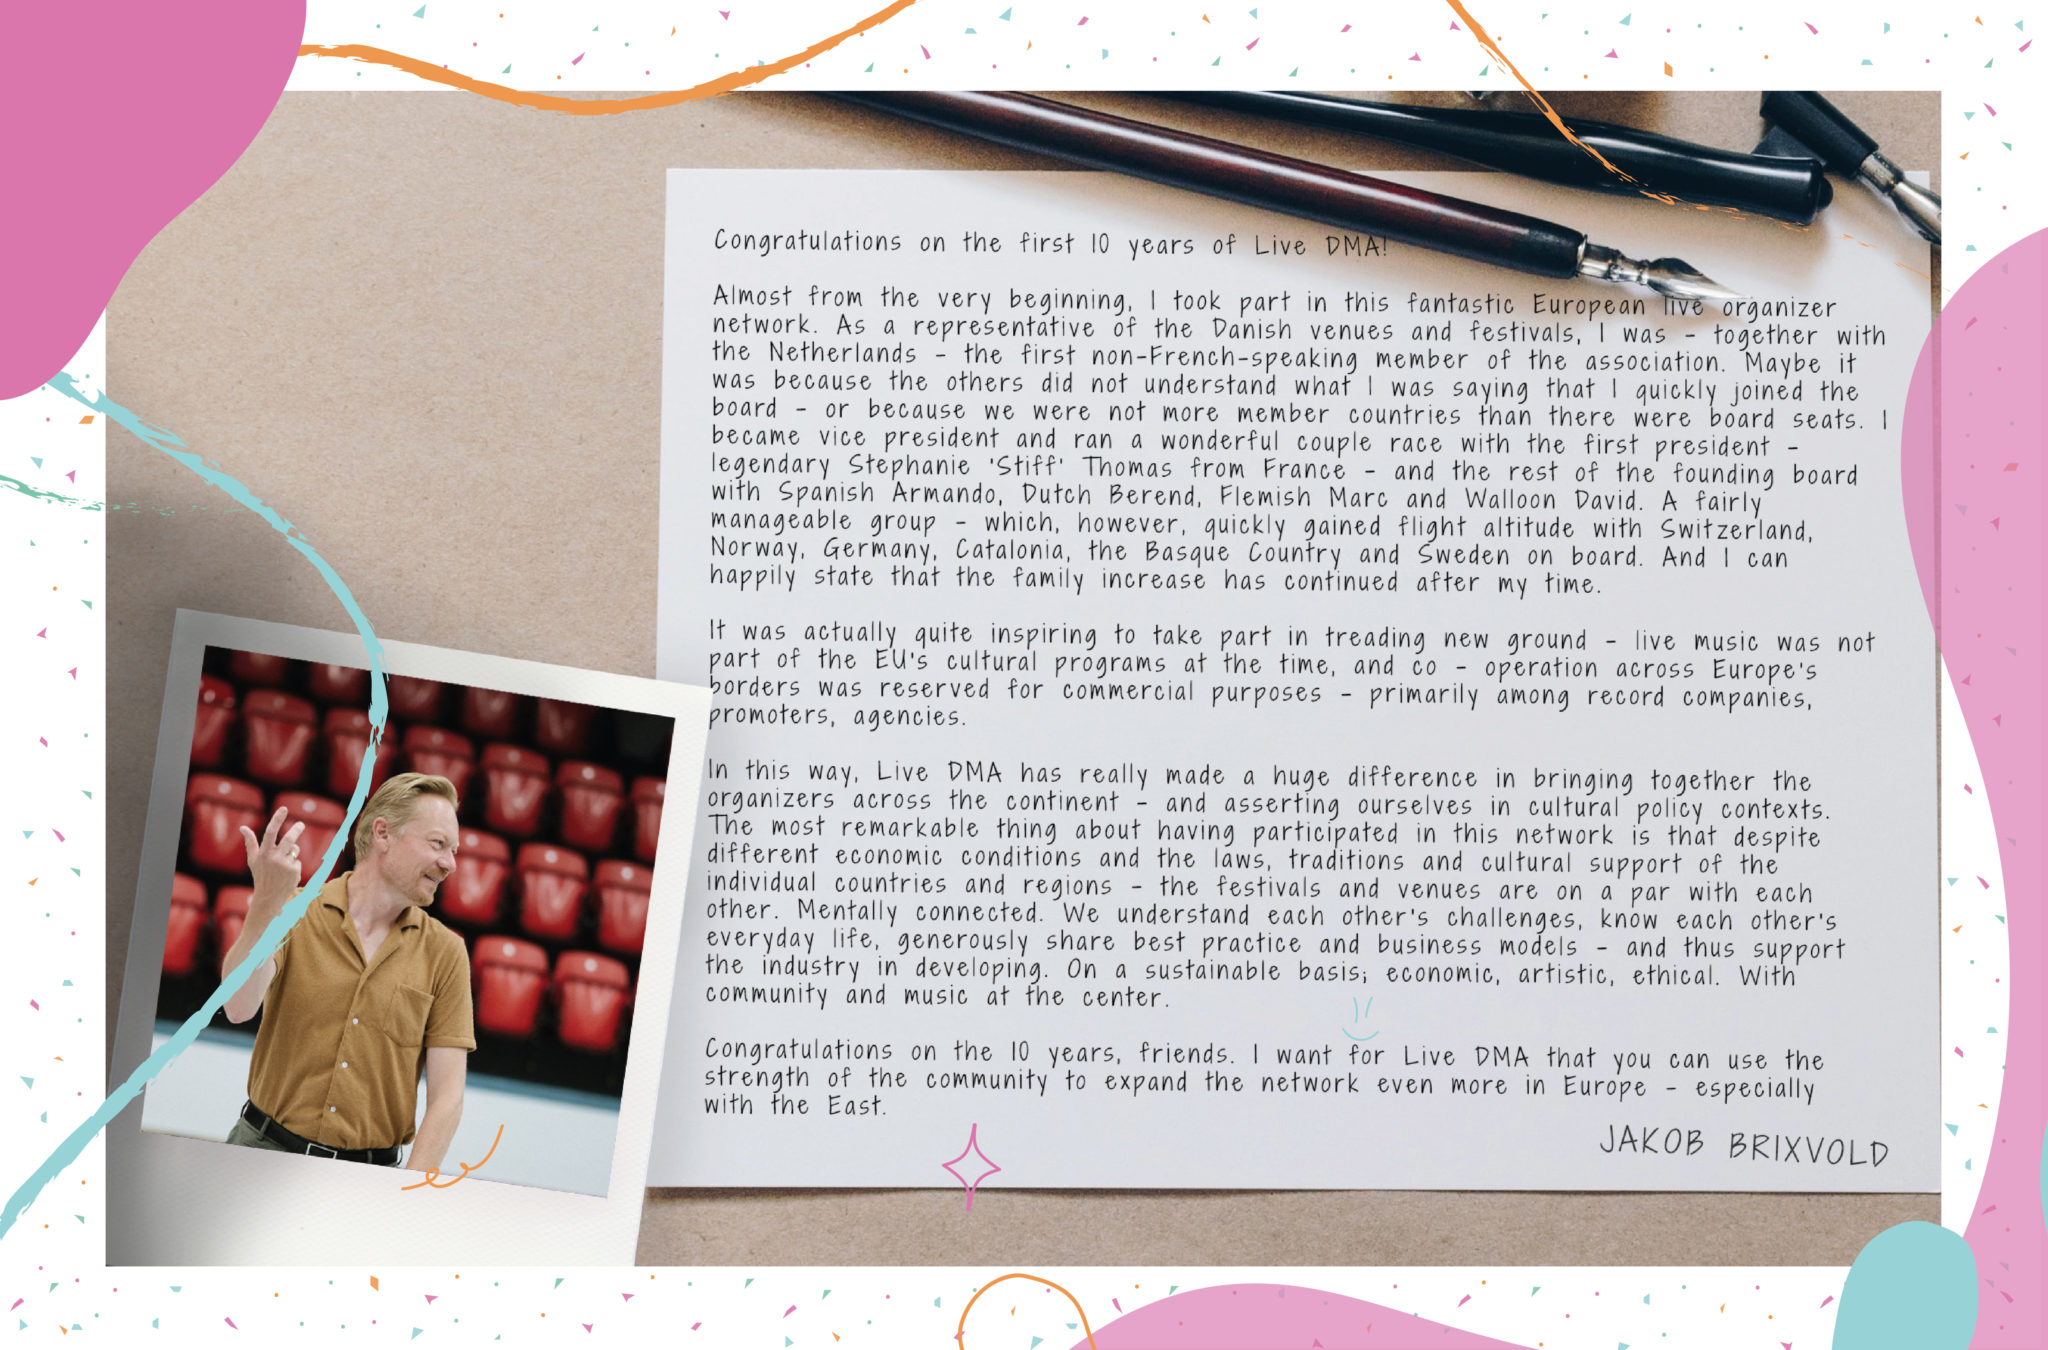 Congratulations on the first 10 years of Live DMA!
Almost from the very beginning, I took part in this fantastic European live organizer
network. As a representative of the Danish venues and festivals, I was - together with
the Netherlands - the first non-French-speaking member of the association. Maybe it
was because the others did not understand what I was saying that I quickly joined the
board - or because we were not more member countries than there were board seats. I
became vice president and ran a wonderful couple race with the first president -
legendary Stephanie 'Stiff' Thomas from France - and the rest of the founding board
with Spanish Armando, Dutch Berend, Flemish Marc and Walloon David. A fairly
manageable group - which, however, quickly gained flight altitude with Switzerland,
Norway, Germany, Catalonia, the Basque Country and Sweden on board. And I can
happily state that the family increase has continued after my time.
It was actually quite inspiring to take part in treading new ground - live music was not
part of the EU's cultural programs at the time, and co - operation across Europe's
borders was reserved for commercial purposes - primarily among record companies,
promoters, agencies.
In this way, Live DMA has really made a huge difference in bringing together the
organizers across the continent - and asserting ourselves in cultural policy contexts.
The most remarkable thing about having participated in this network is that despite
different economic conditions and the laws, traditions and cultural support of the
individual countries and regions - the festivals and venues are on a par with each
other. Mentally connected. We understand each other's challenges, know each other's
everyday life, generously share best practice and business models - and thus support
the industry in developing. On a sustainable basis; economic, artistic, ethical. With
community and music at the center.
Congratulations on the 10 years, friends. I want for Live DMA that you can use the
strength of the community to expand the network even more in Europe - especially
with the East.
JAKOB BRIXVOLD